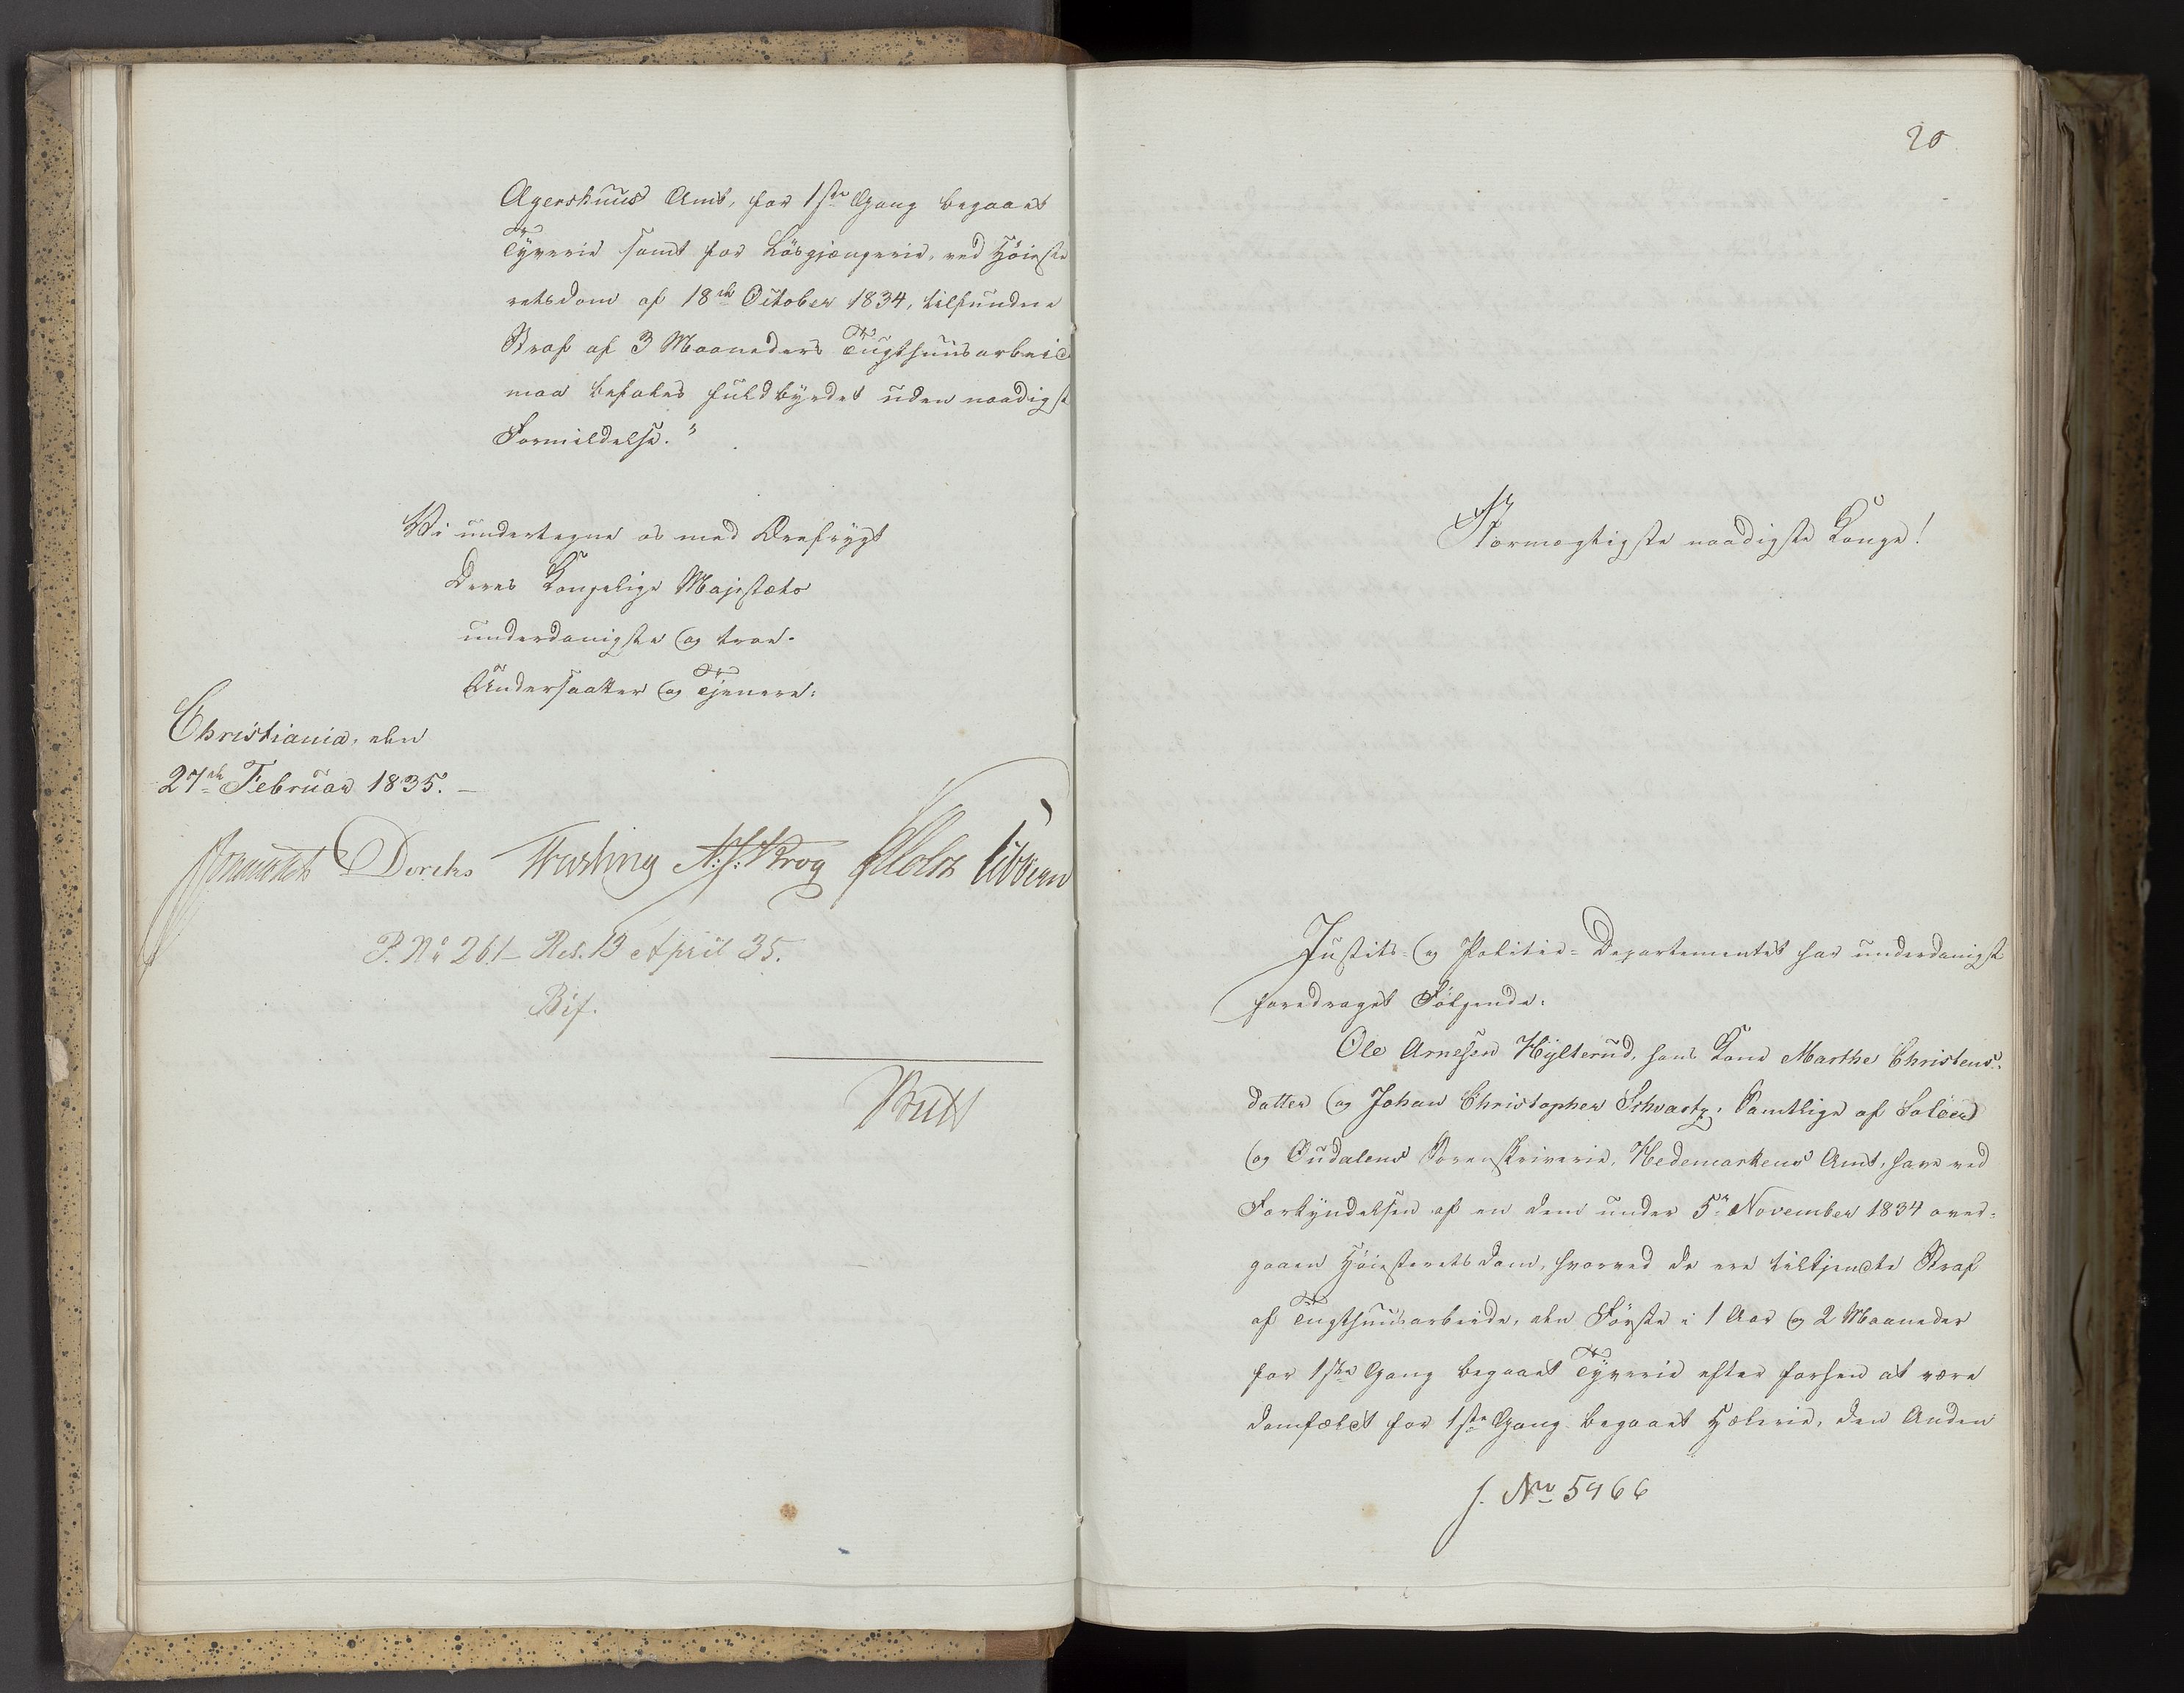 Agershuus Amt, for 1ste Gang begaaet
Tyverie samt for Løsgjængerie, ved Høieste
retsdom af 18de October 1834, tilfundne
Straf af 3 Maaneders Tugthuusarbeid
maa befales fuldbyrdet uden naadigst
Formildelse."
Vi undertegne os med Ærefrygt
Deres Kongelige Majestæts
underdanigste og troe-
Undersaatter og Tjenere:
Christiania, den
27de Februar 1835. –
Diriks N. J. Krog Holst Vibbern
P. No 261 – Res. 13 April 35.
Bif.
20
Stormægtigste naadigste Konge!
Justits- og Politie-Departementet har underdanigst
foredraget Følgende:
Ole Arnesen Hylterud, hans Kone Marthe Christens-
datter og Johan Christopher Schvartz, Samtlige af Soløer
og Oudalens Sorenskriverie, Hedemarkens Amt, have ved
Forkyndelsen af en dem under 5te November 1834 over-
gaaen Høiesteretsdom, hvorved de ere tiltjendte Straf
af Tugthuusarbeide, den Første i 1 Aar og 2 Maaneder
for 1ste Gang begaaet Tyverie efter forhen at være
domfældt for 1ste Gang begaaet Hælerie, den Anden
J. No 5966